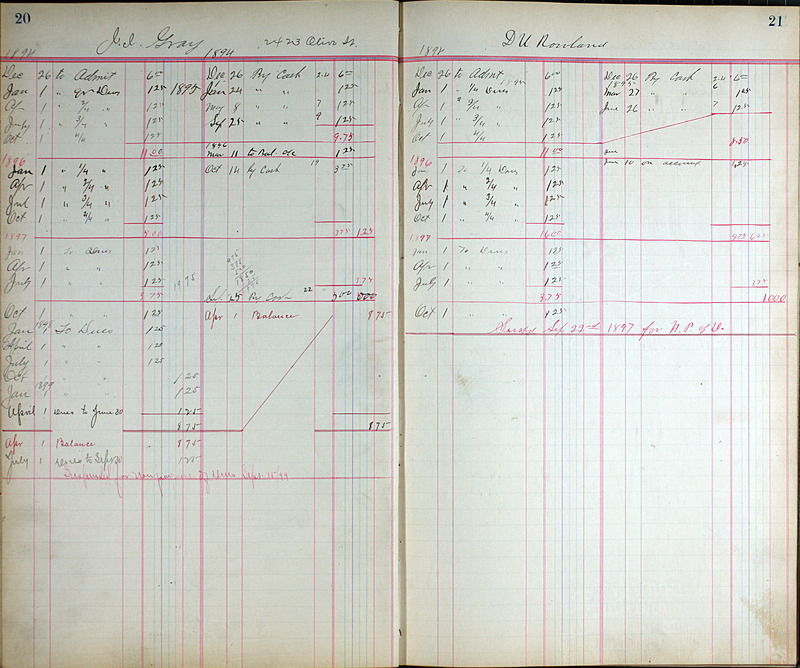 20
J. I. Gray 2423 Olive St.
1894 1894
Dec 26 to Admit 6 00 Dec 26 By Cash 6 00
Jan 1 " Dues 1 25 1895 Jan 24 " " 1 25
Apr 1 " 2/4 " 1 25 May 8 " " 7 1 25
July 1 " 3/4 " 1 25 Sep 25 " " 9 1 25
Oct 1 4/4 1 25 9.75
11 00 1896 Mar 11 to Bal 1 25
1896
Jan 1 " 1/4 " 1 25 Oct 14 By Cash 19 3 75
Apr 1 " 2/4 " 1 25
Jul 1 " 3/4 " 1 25
Oct 1 " 4/4 " 1 25
5 00 1 25
1897
Jan 1 To Dues 1 25
Apr 1 " " 1 25
July 1 " " 1 25
3 75 25 By Cash 22 5 00
Oct 1 " " 1 25 Apr 1 Balance 8 75
Jan 1898 1 To Dues 1 25
April 1 " " 1 25
July 1 " " 1 25
Oct " " 1 25
Jan 1899 " " 1 25
April 1 Dues to June 30 1 25
8 75 8 75
Apr 1 Balance 8 75
July 1 Dues to Sept 30 1 25
Suspended for of Dues Sept 15 99
21
D U Rowland
1894
Dec 26 to Admt 6 00 Dec 26 By Cash 6 00
Jan 1 " 1/4 Dues 1895 1 25 1895 Mar 27 " " 6 1 25
Apr 1 " 2/4 " 1 25 June 26 " " 7 1 25
July 1 " 3/4 " 1 25
Oct 1 4/4 1 25 8.50
11 00
1896
Jan 1 To 1/4 Dues 1 25 June 10 on account 1 25
Apr 1 " 2/4 " 1 25
July 1 " 3/4 " 1 25
Oct 1 " 4/4 " 1 25
16 00
1897
Jan 1 To Dues 1 25
Apr 1 " " 1 25
July 1 " " 1 25
3.75 10 00
Oct 1 1 25
Susp Sep 22nd 1897 for N. P. of D.